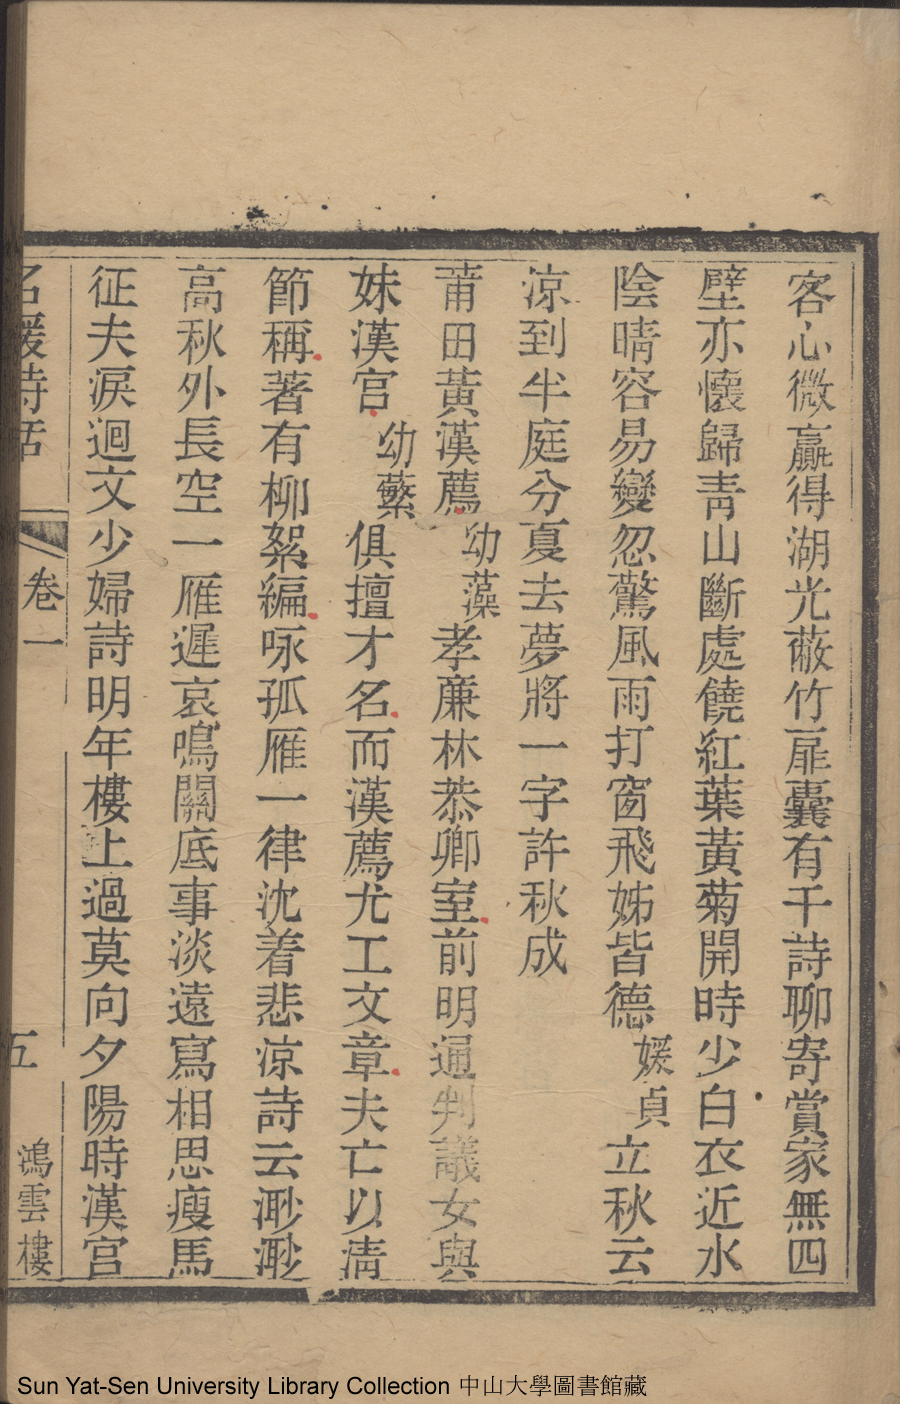 客心微贏得湖光蔽竹扉囊有千詩聊寄賞家無四
壁亦懷歸青山斷處饒紅葉黃菊開時少白衣近水
陰晴容易變忽驚風雨打窗飛姊皆德媛貞立秋云
涼到半庭分夏去夢將一字許秋成
莆田黃漢薦幼藻孝廉林恭卿室前明通判議女與
妹漢宮幼蘩俱擅才名而漢薦尤工文章夫亡以清
節稱著有柳絮編咏孤雁一律沈着悲涼詩云渺渺
高秋外長空一雁遲哀鳴關底事淡遠寫相思瘦馬
征夫淚迴文少婦詩明年樓上過莫向夕陽時漢宮
名媛詩話 卷一 五 鴻雲樓
Sun Yat-Sen University Library Collection 中山大學圖書館藏